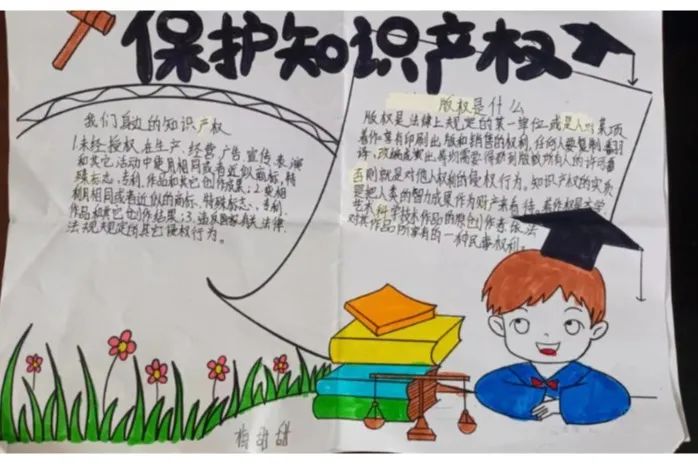 保护知识产权
我们身边的知识产权
1.未经授权,在生产、经营、广告、宣传、表演
和其它活动中使用相同或者近似商标,特
殊标志、专利、作品和其它创作成果;2.变相
利用相同或者近似的商标、特殊标志、专利、
作品和其它创作结果;3.违反国家有关法律
法规规定的其它侵权行为。
版权是什么
版权是法律上规定的某一单位或是人对某项
著作享有印刷出版和销售的权利,任何人要复制、翻
译、改编或演出等均需要得到版权所有人的许可,
否则就是对他人权利的侵权行为。知识产权的实质
是把人类的智力成果作为财产来看待。著作权是文学
艺术科学技术作品的原创作者,依法
对其作品所享有的一种民事权利。